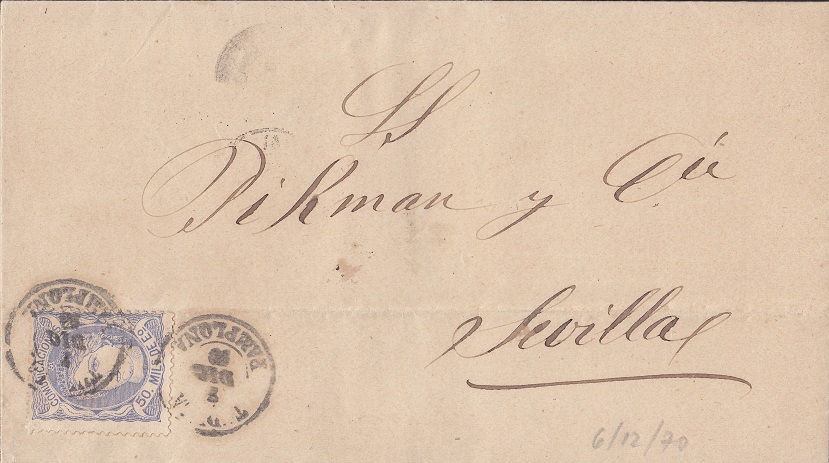 SS
Pikman y Cía
Sevilla
COMUNICACIONES
50. MILS DE Eo
PAMPLONA
DIC
PAMPLONA
DIC
6/12/70